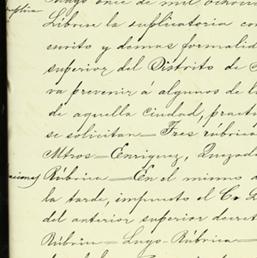 Mayo once de mil ochocien
Líbrese la suplicatoria con
curito y demas formalid
superior del Distrito de
va prevenir a algunos de l
de aquella ciudad, pract
se solicitan— Tres rúbric
Mtros— Enriquez, Quezad
Rúbrica— En el mismo d
la tarde, impuesto el C. L
del anterior superior decret
Rúbrica— Lugo-Rúbrica—